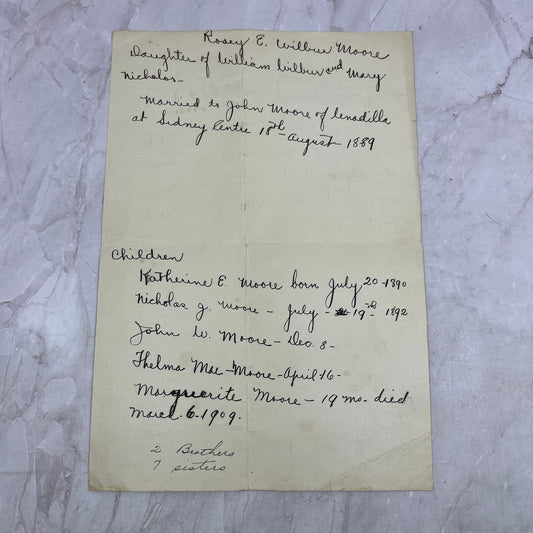 Rosey E. Wilbur Moore
Daughter of William Wilbur and Mary
Nicholas -
Married to John Moore of Unadilla
at Sidney Centre 18th August 1889
Children
Katherine E. Moore born July 20 - 1890
Nicholas J. Moore - July - 19th - 1892
John W. Moore - Dec. 8 -
Thelma Mae - Moore - April 16 -
Marguerite Moore - 19 mo - died
March 6 - 1909.
2 Brothers
7 sisters